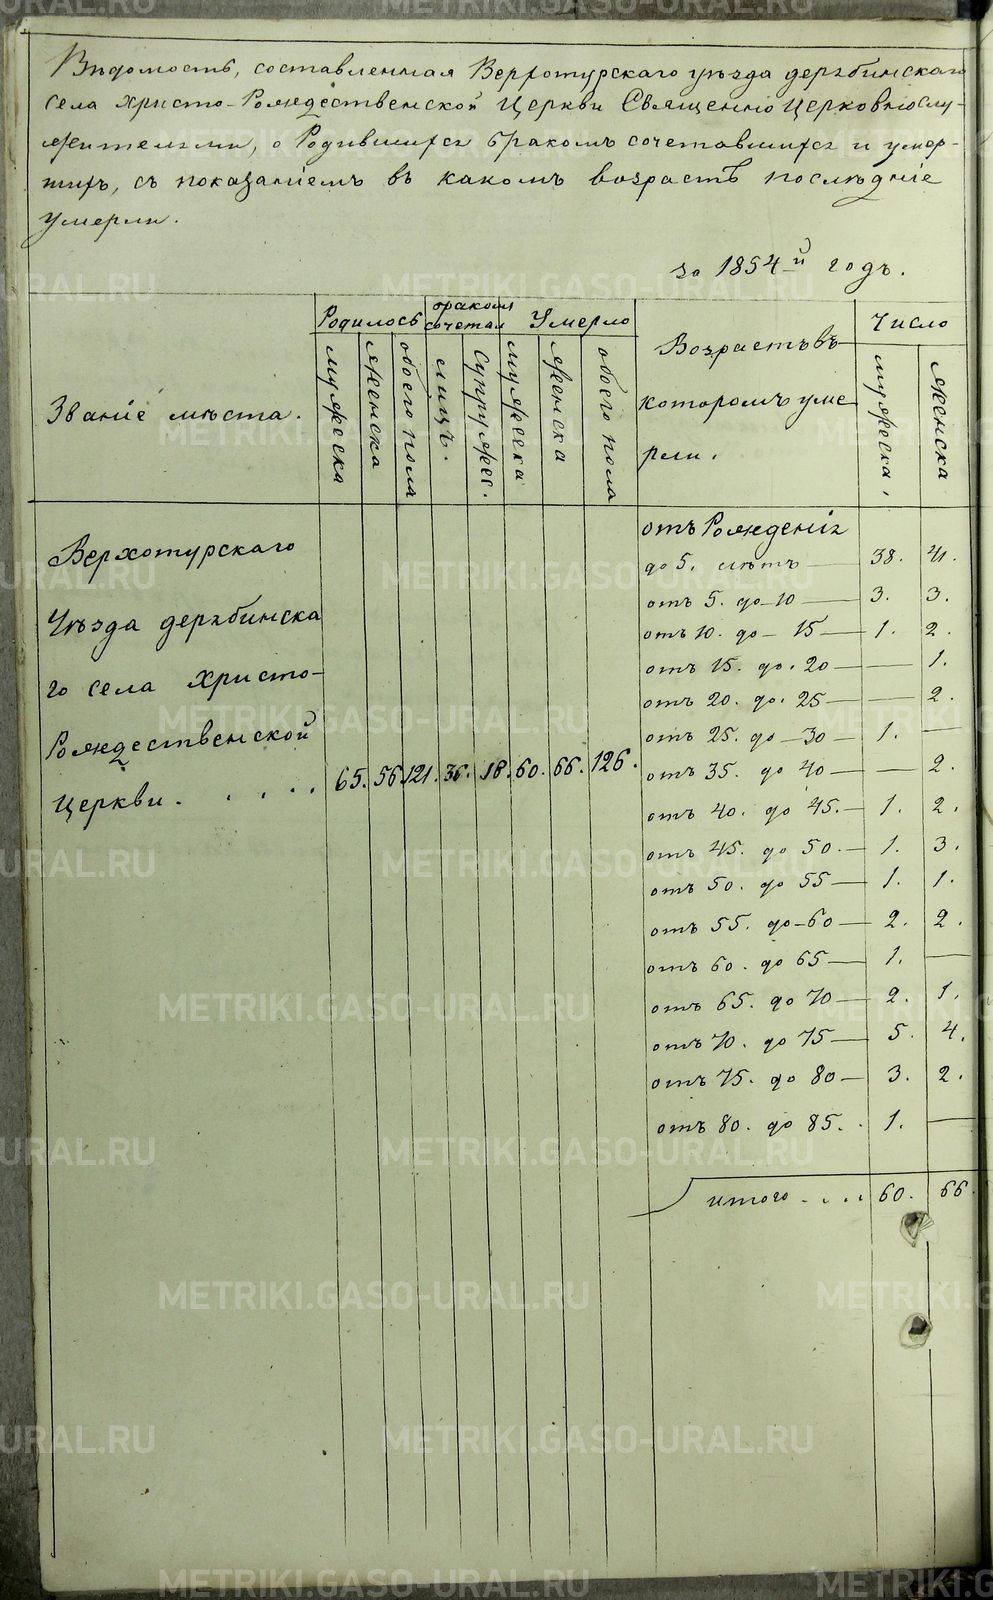 Вѣдомость, составленная Верхотурскаго уѣзда дерябинскаго
села Христо-Рождественской Церкви Священно Церковнослу-
жителями, о Родившихся бракомъ сочетавшихся и умер-
шихъ, съ показаніемъ въ какомъ возрастѣ послѣдніе
умерли.
за 1854й годъ.
Званіе мѣста.
Родилось
бракомъ
сочетал
Умерло
Возрастъ въ
которомъ уме
рли.
Число
мужеска
женска
обоего пола
лицъ.
супружес.
мужеска
женска
обоего пола
мужеска.
женска
Верхотурскаго
Уѣзда дерябинска
го села Христо-
Рождественской
Церкви . . . . . 65. 56 121. 36. 18. 60. 66. 126.
отъ Рожденія
до 5. лѣтъ — 38. 41.
отъ 5. до 10 — 3. 3.
отъ 10. до 15 — 1. 2.
отъ 15. до 20 — — 1.
отъ 20. до 25 — — 2.
отъ 25. до 30 — 1. —
отъ 35. до 40 — — 2.
отъ 40. до 45. — 1. 2.
отъ 45. до 50. — 1. 3.
отъ 50. до 55 — 1. 1.
отъ 55. до 60 — 2. 2.
отъ 60. до 65 — 1. —
отъ 65. до 70 — 2. 1.
отъ 70. до 75 — 5. 4.
отъ 75. до 80 — 3. 2.
отъ 80. до 85. . 1. —
итого . . . . 60. 66.
METRIKI.GASO-URAL.RU